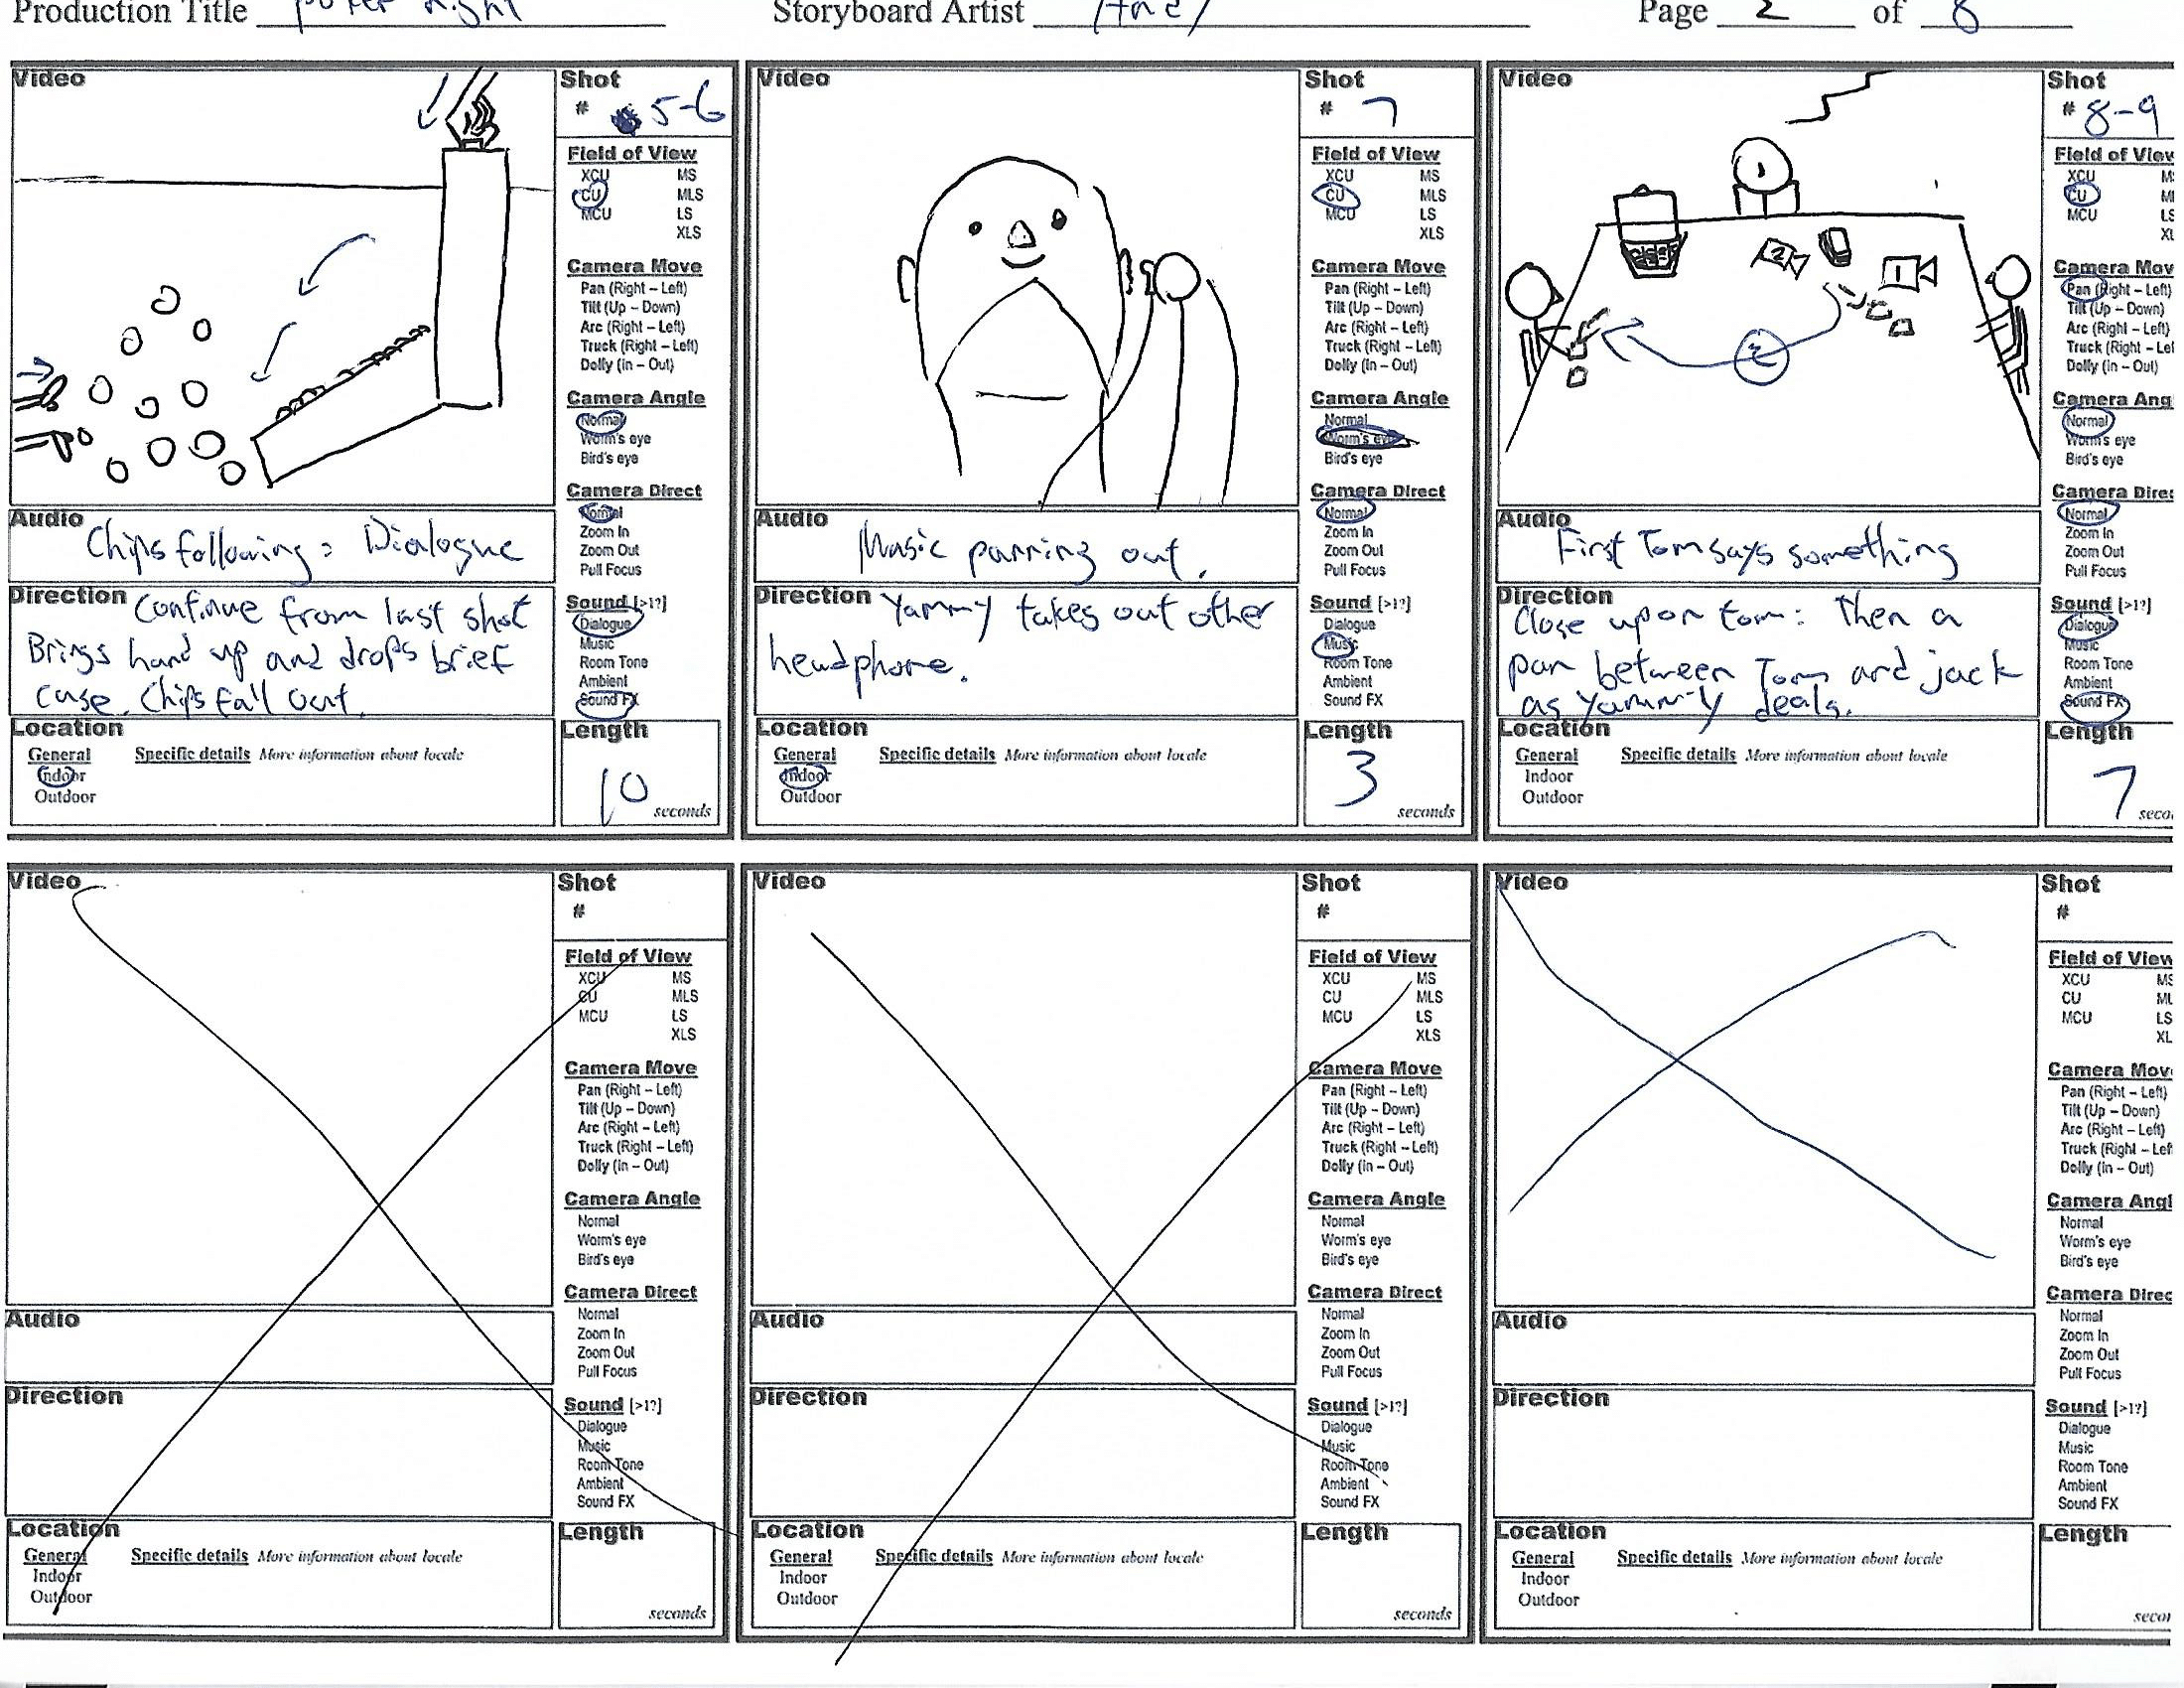 Production Title Poker Night Storyboard Artist Page 2 of 8
Video
Shot
# 5-6
Field of View
XCU MS
CU MLS
MCU LS
XLS
Camera Move
Pan (Right – Left)
Tilt (Up – Down)
Arc (Right – Left)
Truck (Right – Left)
Dolly (In – Out)
Camera Angle
Normal
Worm's eye
Bird's eye
Camera Direct
Normal
Zoom In
Zoom Out
Pull Focus
Sound [>1?]
Dialogue
Music
Room Tone
Ambient
Sound FX
Audio Chips following: Dialogue
Direction Continue from last shot
Brings hand up and drops brief
case. Chips fall out.
Location
General Specific details More information about locale
Indoor
Outdoor
Length
10 seconds
Video
Shot
# 7
Field of View
XCU MS
CU MLS
MCU LS
XLS
Camera Move
Pan (Right – Left)
Tilt (Up – Down)
Arc (Right – Left)
Truck (Right – Left)
Dolly (In – Out)
Camera Angle
Normal
Worm's eye
Bird's eye
Camera Direct
Normal
Zoom In
Zoom Out
Pull Focus
Sound [>1?]
Dialogue
Music
Room Tone
Ambient
Sound FX
Audio Music parring out.
Direction Yammy takes out other
headphone.
Location
General Specific details More information about locale
Indoor
Outdoor
Length
3 seconds
Video
2 1
2
Shot
# 8-9
Field of View
XCU M
CU ML
MCU LS
XL
Camera Mov
Pan (Right – Left)
Tilt (Up – Down)
Arc (Right – Left)
Truck (Right – Lef
Dolly (In – Out)
Camera Ang
Normal
Worm's eye
Bird's eye
Camera Direc
Normal
Zoom In
Zoom Out
Pull Focus
Sound [>1?]
Dialogue
Music
Room Tone
Ambient
Sound FX
Audio First Tom says something
Direction Close up on tom: Then a
pan between Tom and jack
as Yammy deals.
Location
General Specific details More information about locale
Indoor
Outdoor
Length
7 seco
Video
Shot
#
Field of View
XCU MS
CU MLS
MCU LS
XLS
Camera Move
Pan (Right – Left)
Tilt (Up – Down)
Arc (Right – Left)
Truck (Right – Left)
Dolly (In – Out)
Camera Angle
Normal
Worm's eye
Bird's eye
Camera Direct
Normal
Zoom In
Zoom Out
Pull Focus
Sound [>1?]
Dialogue
Music
Room Tone
Ambient
Sound FX
Audio
Direction
Location
General Specific details More information about locale
Indoor
Outdoor
Length
seconds
Video
Shot
#
Field of View
XCU MS
CU MLS
MCU LS
XLS
Camera Move
Pan (Right – Left)
Tilt (Up – Down)
Arc (Right – Left)
Truck (Right – Left)
Dolly (In – Out)
Camera Angle
Normal
Worm's eye
Bird's eye
Camera Direct
Normal
Zoom In
Zoom Out
Pull Focus
Sound [>1?]
Dialogue
Music
Room Tone
Ambient
Sound FX
Audio
Direction
Location
General Specific details More information about locale
Indoor
Outdoor
Length
seconds
Video
Shot
#
Field of View
XCU MS
CU ML
MCU LS
XL
Camera Mov
Pan (Right – Left)
Tilt (Up – Down)
Arc (Right – Left)
Truck (Right – Lef
Dolly (In – Out)
Camera Angl
Normal
Worm's eye
Bird's eye
Camera Direc
Normal
Zoom In
Zoom Out
Pull Focus
Sound [>1?]
Dialogue
Music
Room Tone
Ambient
Sound FX
Audio
Direction
Location
General Specific details More information about locale
Indoor
Outdoor
Length
secon